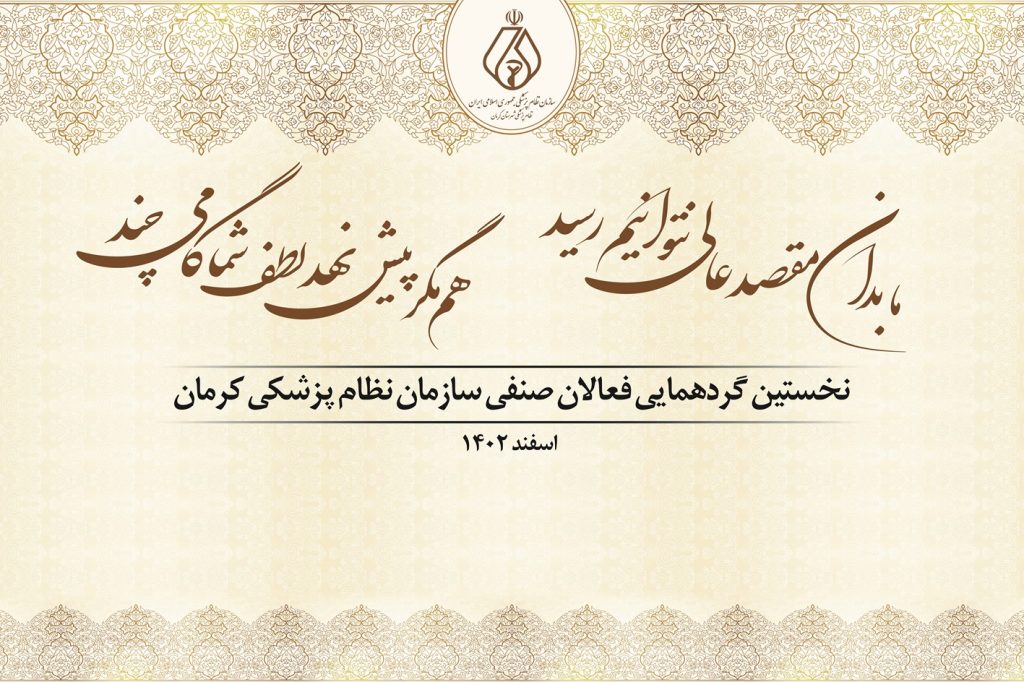 سازمان نظام پزشکی جمهوری اسلامی ایران
نظام پزشکی شهرستان کرمان
ما بدان مقصد عالی نتوانیم رسید
هم مگر پیش نهد لطف شما گامی چند
نخستین گردهمایی فعالان صنفی سازمان نظام پزشکی کرمان
اسفند ۱۴۰۲